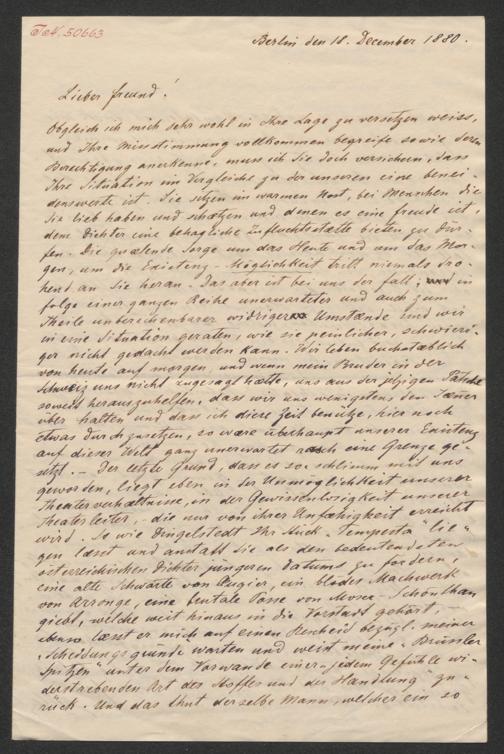 I.N. 50663
Berlin den 18. December 1880.
Lieber Freund!
Obgleich ich mich sehr wohl in Ihre Lage zu versetzen weiss,
und Ihre Missstimmung vollkommen begreife sowie deren
Berechtigung anerkenne, muss ich Sie doch versichern, dass
Ihre Situation im Vergleiche zu der unseren eine benei-
denswerte ist. Sie sitzen im warmen Nest, bei Menschen die
Sie lieb haben und schätzen und denen es eine Freude ist,
dem Dichter eine behagliche Zufluchtsstätte bieten zu dür-
fen. Die quælende Sorge um das Heute und um das Mor-
gen, um die Existenz-Möglichkeit tritt niemals dro-
hend an Sie heran. Das aber ist bei uns der Fall; in
folge einer ganzen Reihe unerwarteter und auch zum
Theile unberechenbarer widriger Umstænde sind wir
in eine Situation geraten, wie sie peinlicher, schwieri-
ger nicht gedacht werden kann. Wir leben buchstæblich
von heute auf morgen, und wenn mein Bruder in der
Schweiz uns nicht zugesagt hætte, uns aus der jetzigen
soweit herauszuhelfen, dass wir uns wenigstens den Jæner
über halten und dass ich diese Zeit benütze, hier noch
etwas durchzusetzen, so wære überhaupt unserer Existenz
auf dieser Welt ganz unerwartet rasch eine Grenze ge-
setzt. – Der letzte Grund, dass es so schlimm mit uns
geworden, liegt eben in der Unmöglichkeit unserer
Theaterverhæltnisse, in der Gewissenlosigkeit unserer
Theaterleiter, die nur von ihrer Unfæhigkeit erreicht
wird. So wie Dingelstedt Ihr Stück „Tempesta" lie-
gen læsst und anstatt Sie als den bedeutendsten
österreichischen Dichter jüngeren Datums zu fördern,
eine alte Schwarte von Augier, ein blödes Machwerk
von Arronge, eine brutale Posse von Moser-Schönthan
giebt, welche weit hinaus in die Vorstadt gehört,
ebenso læsst er mich auf einen Bescheid bezügl. meiner
„Scheidungsgründe warten und weist meine „Brüssler
Spitzen" unter dem Vorwande einer „jedem Gefühle wi-
derstrebenden Art des Stoffes und der Handlung" zu-
rück. Und das thut derselbe Mann, welcher ein so